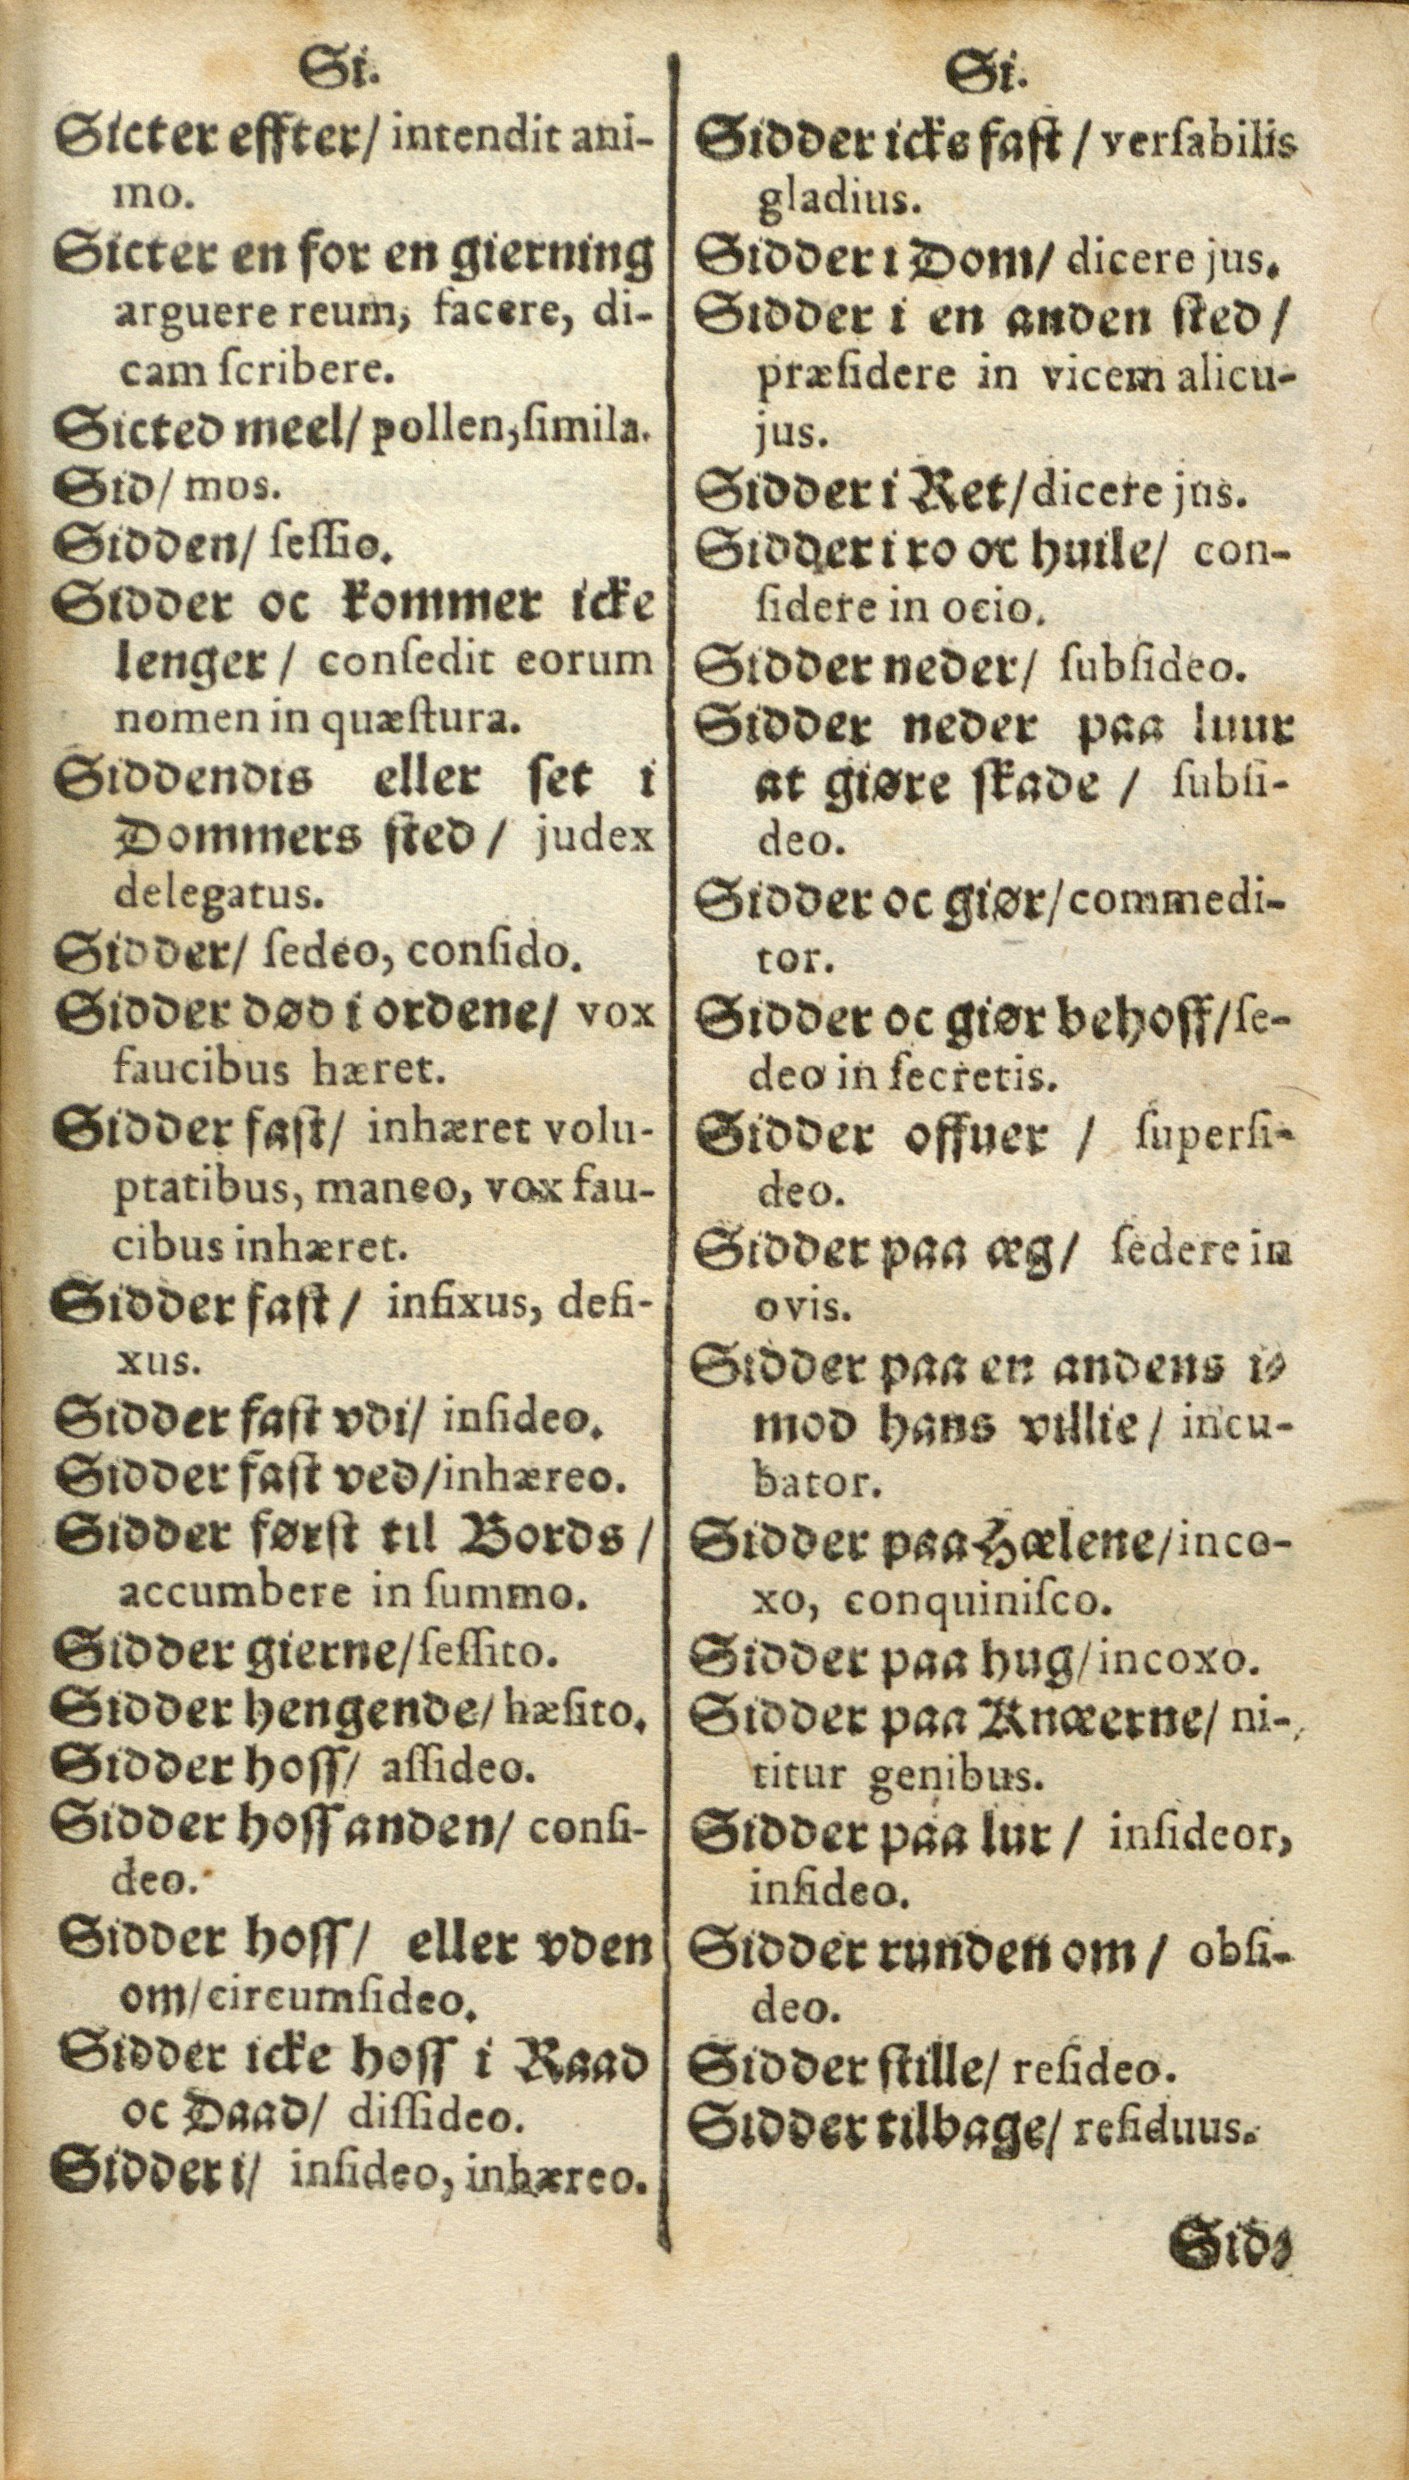 Si.
Sicter effter/ intendit ani-
mo.
Sicter en for en gierning
arguere reum, facere, di-
cam ſcribere.
Sicted meel/ pollen, ſimila.
Sid/ mos.
Sidden/ ſeſſio.
Sidder oc kommer icke
lenger/ conſedit eorum
nomen in quæſtura.
Siddendis eller ſet i
Dommers ſted/ judex
delegatus.
Sidder/ ſedeo, conſido.
Sidder død i ordene/ vox
faucibus hæret.
Sidder faſt/ inhæret volu-
ptatibus, maneo, vox fau-
cibus inhæret.
Sidder faſt/ infixus, defi-
xus.
Sidder faſt vdi/ inſideo.
Sidder faſt ved/ inhæreo.
Sidder førſt til Bords/
accumbere in ſummo.
Sidder gierne/ ſeſſito.
Sidder hengende/ hæſito.
Sidder hoſſ/ aſſideo.
Sidder hoſſ anden/ conſi-
deo.
Sidder hoſſ/ eller vden
om/ circumſideo.
Sidder icke hoſſ i Raad
oc Daad/ diſſideo.
Sidder i/ inſideo, inhæreo.
Si.
Sidder icke faſt/ verſabilis
gladius.
Sidder i Dom/ dicere jus.
Sidder i en anden ſted/
præſidere in vicem alicu-
jus.
Sidder i Ret/ dicere jus.
Sidder i ro oc huile/ con-
ſidere in ocio.
Sidder neder/ ſubſideo.
Sidder neder paa luur
at giøre ſkade/ ſubſi-
deo.
Sidder oc giør/ commedi-
tor.
Sidder oc giør behoff/ ſe-
deo in ſecretis.
Sidder offuer/ ſuperſi-
deo.
Sidder paa æg/ ſedere in
ovis.
Sidder paa en andens i-
mod hans villie/ incu-
bator.
Sidder paa Hælene/ inco-
xo, conquiniſco.
Sidder paa hug/ incoxo.
Sidder paa Knæerne/ ni-
titur genibus.
Sidder paa lur/ inſideor,
inſideo.
Sidder runden om/ obſi-
deo.
Sidder ſtille/ reſideo.
Sidder tilbage/ reſiduus.
Sid-